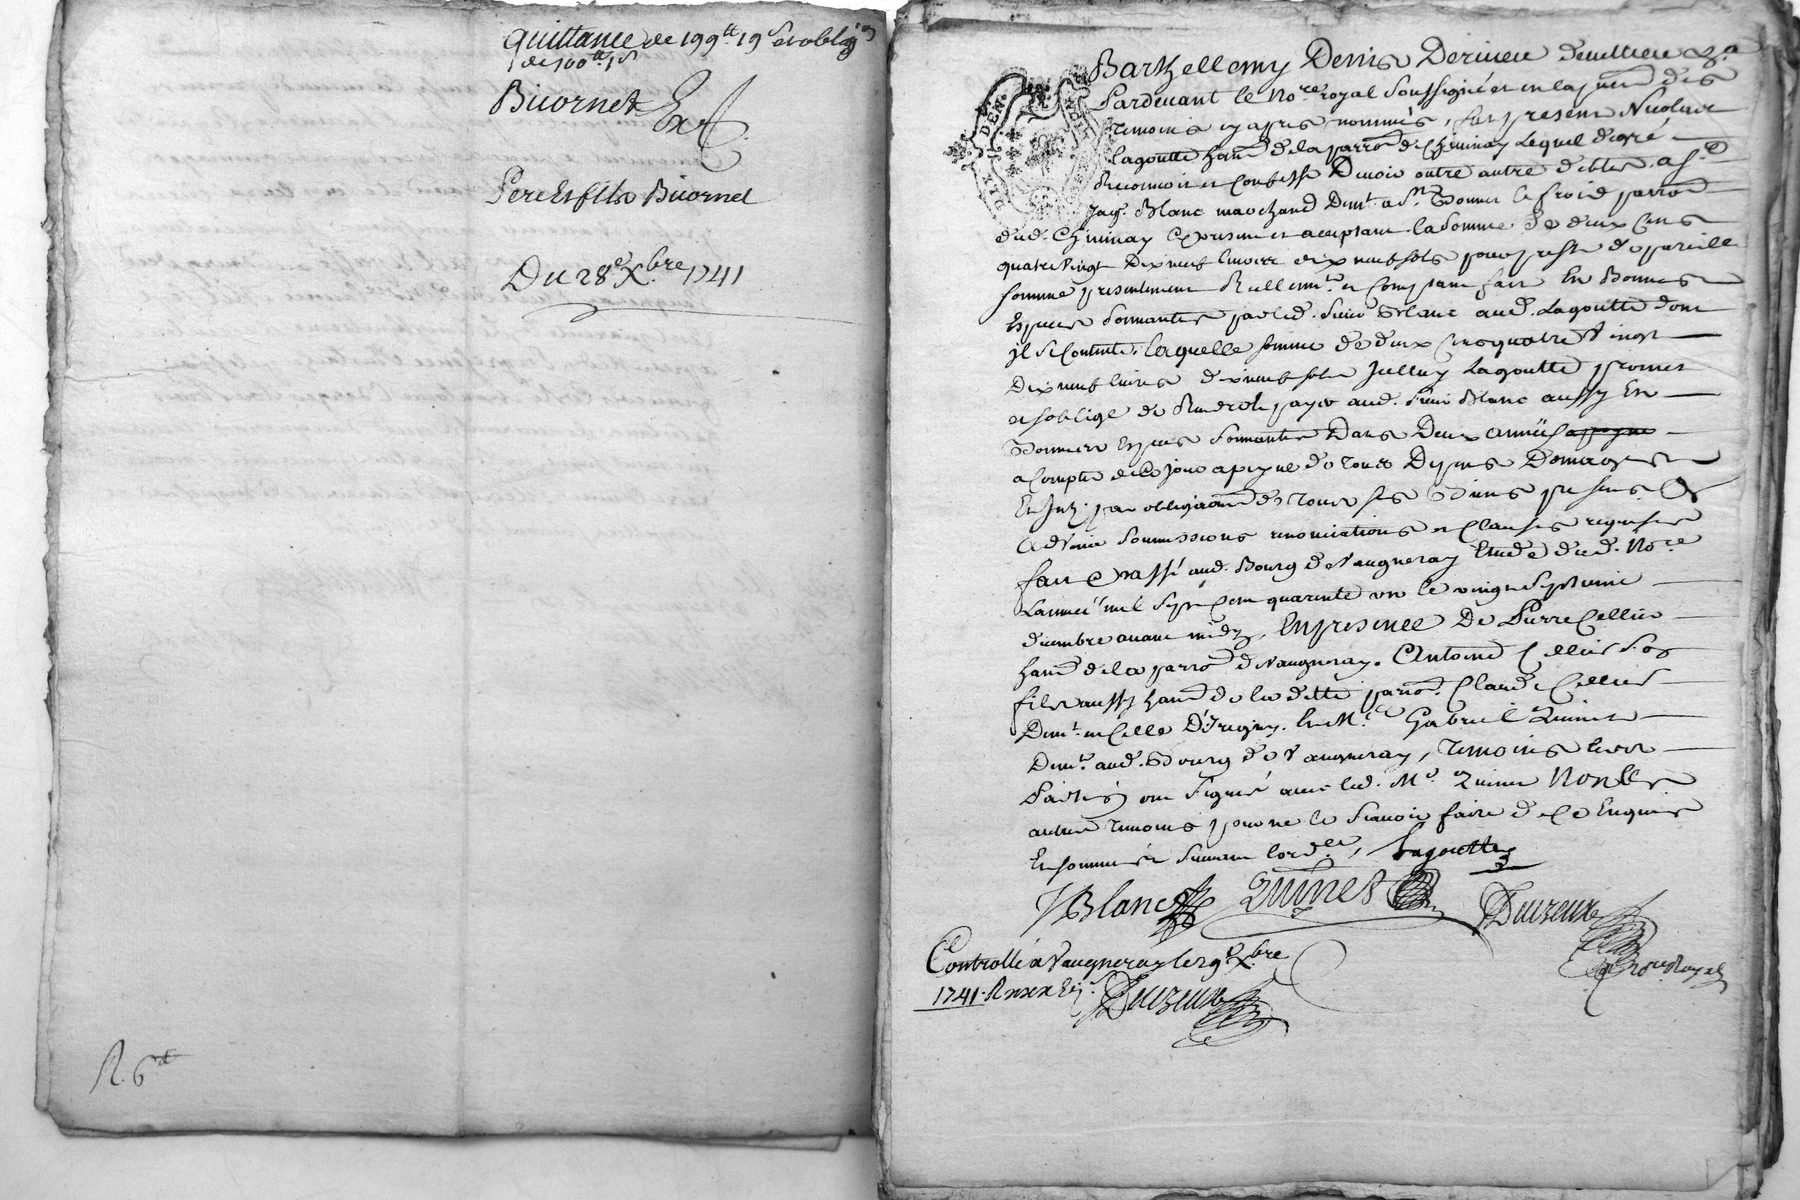 Quittance de 199ᵗᵗ 19ˢ et oblig
de 100ᵗᵗ 1ˢ
Bicornet
Pere et fils Bicornet
Du 28ᵉ Xbre 1741
R. 6ᵗᵗ
Barthellemy Denis
Pardevant le Noʳᵉ royal soussigné et en la pñce des
temoins cy apres nommés, fut present Nicolas
Lagoutte habᵗ de la parroᵉ de Chevinay Lequel de gré
Reconnoit et confesse Devoir outre autre debte a Sʳ
Jaq. Blanc marchand Demᵗ a Sᵗ Bonnet le froid parroᵉ
dud. Chevinay present et acceptant la somme de deux cens
quatre vingt Dix neuf livres dix neuf sols pour prest de pareille
somme presentement Reellemᵗ et comptant fait En Bonnes
Especes sonnantes par led. sieur Blanc aud. Lagoutte dont
jl se Contente, laquelle somme de deux cens quatre Vingt
Dix neuf livres dix neuf sols Jcelluy Lagoutte promet
et s'oblige de Rendre et payer aud. sieur Blanc aussy En
Bonnes Especes sonnantes Dans Deux années
a Compter de ce jour a peyne de tous Depens Domages
Et Jnt. par obligaõn de tous ses Biens presens &
advenir soumissions renonciations et clauses requises
fait et Passé aud. Bourg de Vaugneray Etude dud. Noʳᵉ
L'année mil sept cent quarente un le vingt septieme
decembre avant midy, En presence De Pierre Cellier
habᵗ de la parroᵉ de Vaugneray. Antoine Cellier son
fils aussy habᵗ de la ditte parroᵉ. Claude Cellier
Demᵗ en celle D'Irigny. Et Mᵉ Gabriel Quinet
Demᵗ aud. Bourg de Vaugneray, temoins les
Parties ont signé avec led. Mᵉ Quinet Non les
autres temoins pour ne le scavoir faire de ce Enquis
Et sommés suivant l'ordᶜᵉ, Lagoutte
J Blanc Quinet
Noʳᵉ Royal
Controllé a Vaugneray le 29ᵉ Xbre
1741. R